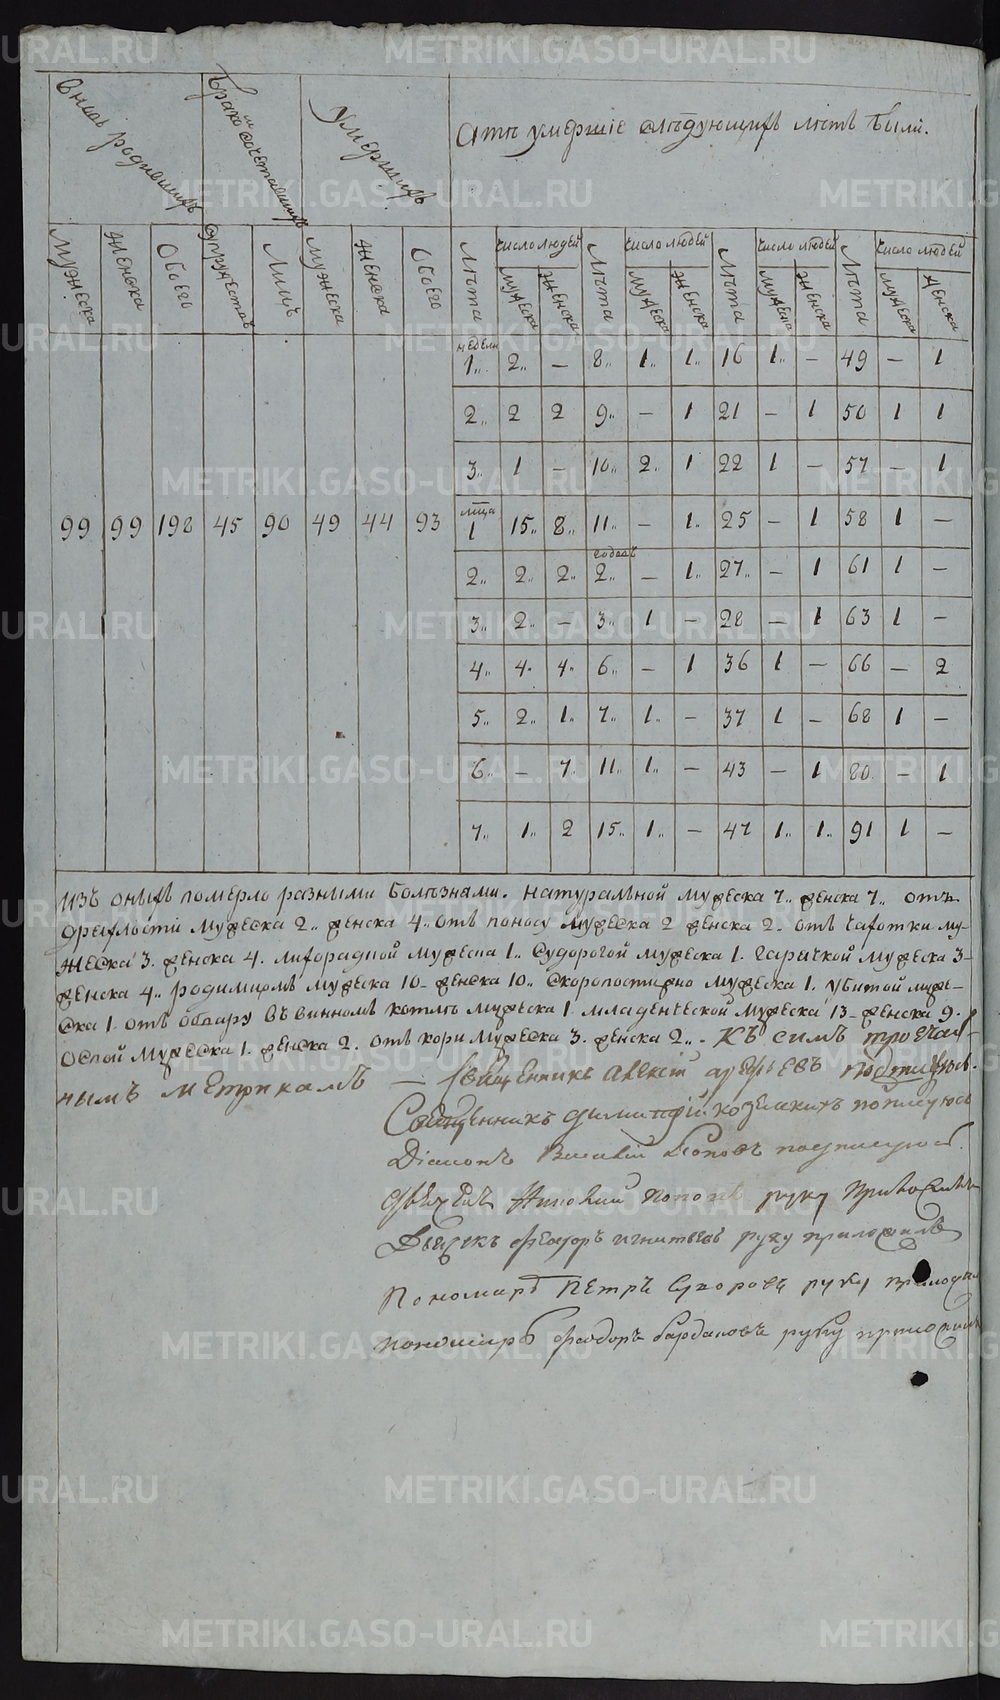 Вновь родившихъ
Бракосочетавшихъ
Умершихъ
А тѣ умершіе слѣдующихъ лѣтъ были.
Мужеска Женска Обоего Супружествъ Лицъ Мужеска Женска Обоего
Лѣта число людей Лѣта число людей Лѣта число людей Лѣта число людей
мужеска женска мужеска женска мужеска женска мужеска женска
недели
1.. 2.. — 8.. 1.. 1.. 16 1.. — 49 — 1
2.. 2 2 9.. — 1 21 — 1 50 1 1
3.. 1 — 10.. 2.. 1 22 1 — 57 — 1
99 99 198 45 90 49 44 93
мца
1 15.. 8.. 11.. — 1.. 25 — 1 58 1 —
годовъ
2.. 2.. 2.. 2.. — 1.. 27.. — 1 61 1 —
3.. 2.. — 3.. 1 — 28 — 1 63 1 —
4.. 4.. 4.. 6.. — 1 36 1 — 66 — 2
5.. 2.. 1.. 7.. 1.. — 37 1 — 68 1 —
6.. — 7. 11.. 1.. — 43 — 1 80 — 1
7.. 1.. 2 15.. 1.. — 47 1.. 1.. 91 1 —
изъ оныхъ померло разными болѣзнами. натуралной мужеска 7.. женска 7.. отъ
дряхлости мужеска 2.. женска 4.. отъ поносу мужеска 2 женска 2. отъ чахотки му-
жеска 3. женска 4. лихорадкой мужеска 1.. судорогой мужеска 1. гаричкой мужеска 3-
женска 4.. родимцомъ мужеска 10- женска 10.. скоропостижно мужеска 1. убитой муже-
ска 1. отъ обвару въ винномъ котлѣ мужеска 1. младенческой мужеска 13- женска 9.
оспой мужеска 1. женска 2. отъ кори мужеска 3. женска 2.. - Къ симъ
нымъ метрикамъ — Священникъ Алексій подписуюсь.
Священникъ Димитрій подписуюсь
Діаконъ Василій Поповъ подписуюсь.
Поповъ руку приложилъ
Дьячекъ Феодоръ Игнатьевъ руку приложилъ
Пономарь Петръ руку приложилъ
пономарь Феодоръ руку приложилъ
METRIKI.GASO-URAL.RU